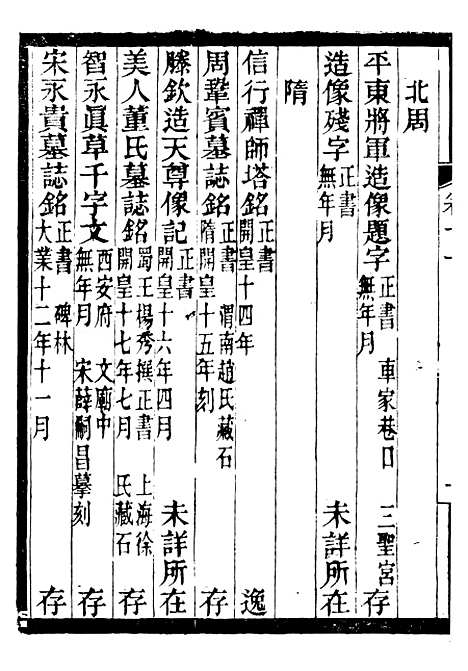 北周
平東將軍造像題字 正書 無年月 車家巷口 三聖宮 存
造像殘字 正書 無年月 未詳所在
隋
信行禪師塔銘 正書 開皇十四年 逸
周鞏賓墓誌銘 正書 隋開皇十五年刻 渭南趙氏藏石 存
滕欽造天尊像記 正書 開皇十六年四月 未詳所在
美人董氏墓誌銘 蜀王楊秀撰正書 開皇十七年七月 上海徐氏藏石 存
智永眞草千字文 西安府文廟中 無年月 宋薛嗣昌摹刻 存
宋永貴墓誌銘 正書 大業十二年十一月 碑林 存